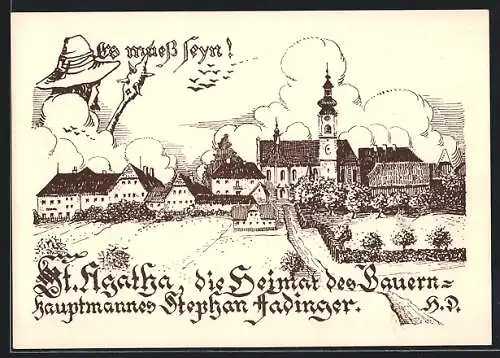 Es mueß seyn!
St. Agatha, die Heimat des Bauern=
hauptmannes Stephan Fadinger.
H.D.